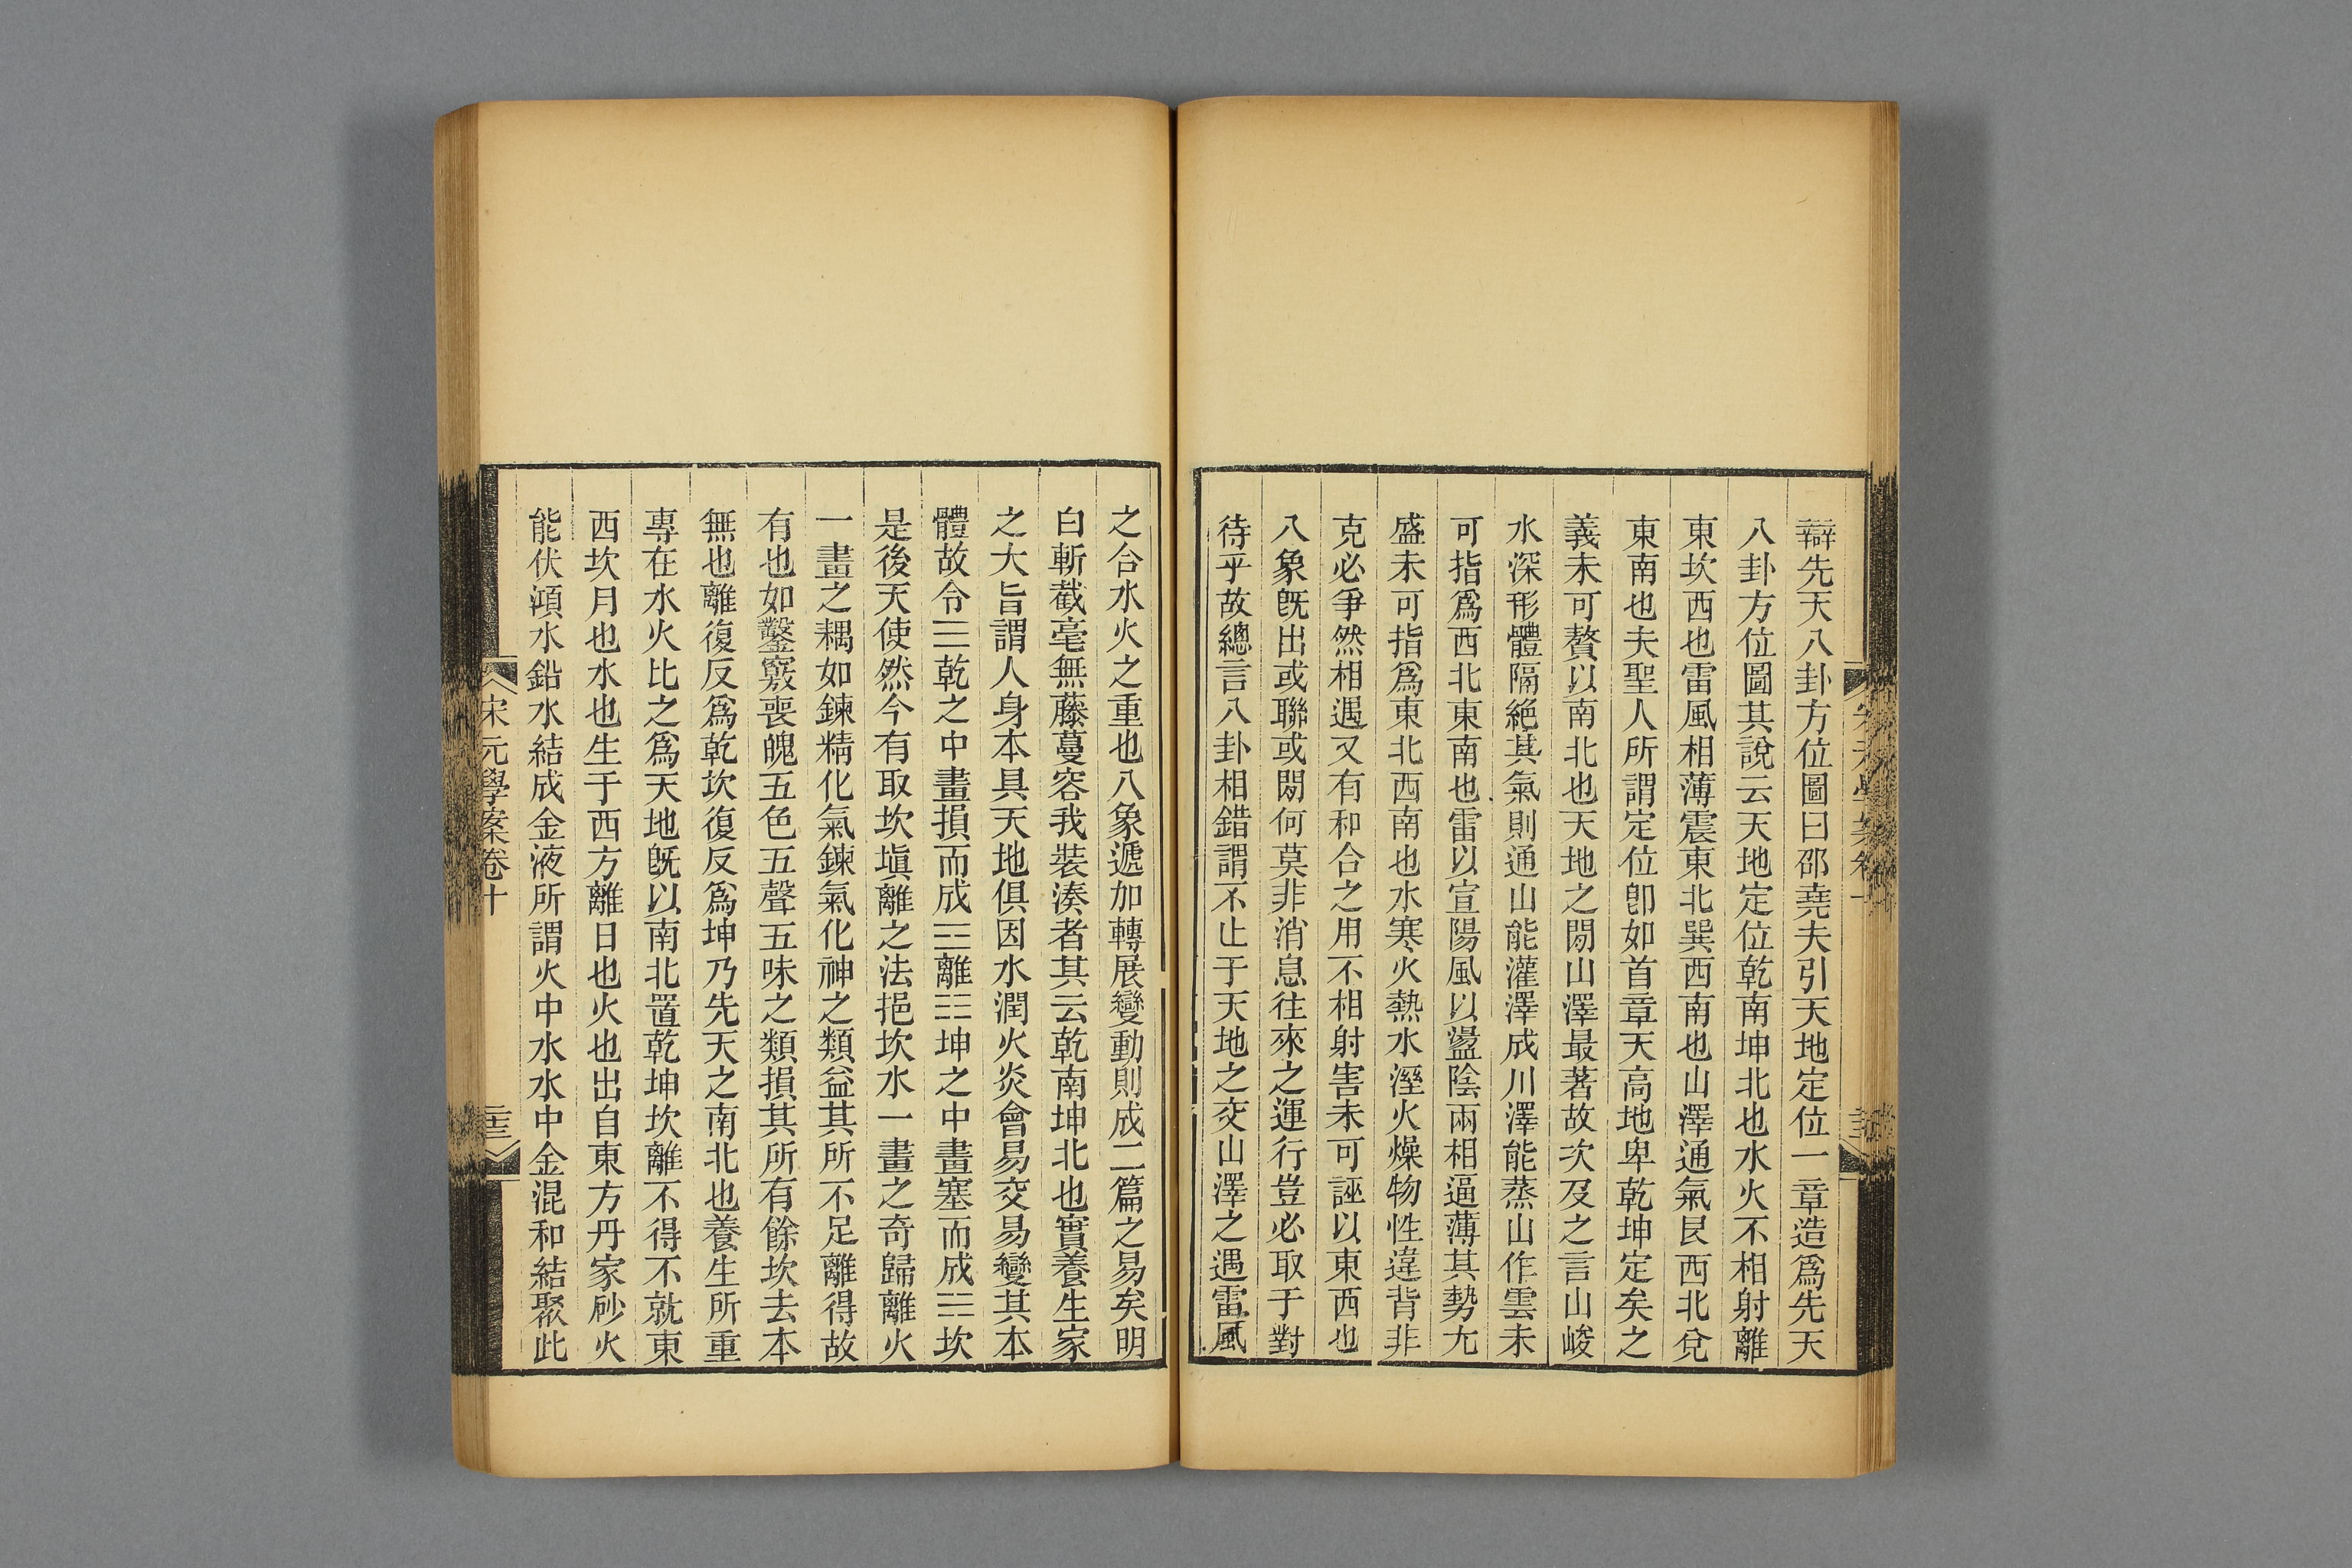 辯先天八卦方位圖曰邵堯夫引天地定位一章造爲先天
八卦方位圖其說云天地定位乾南坤北也水火不相射離
東坎西也雷風相薄震東北巽西南也山澤通氣艮西北兌
東南也夫聖人所謂定位卽如首章天高地卑乾坤定矣之
義未可贅以南北也天地之閒山澤最著故次及之言山峻
水深形體隔絕其氣則通山能灌澤成川澤能蒸山作雲未
可指爲西北東南也雷以宣陽風以盪陰兩相逼薄其勢尤
盛未可指爲東北西南也水寒火熱水溼火燥物性違背非
克必爭然相遇又有和合之用不相射害未可誣以東西也
八象旣出或聯或閒何莫非消息往來之運行豈必取于對
待乎故總言八卦相錯謂不止于天地之交山澤之遇雷風
之合水火之重也八象遞加轉展變動則成二篇之易矣明
白斬截毫無藤蔓容我裝湊者其云乾南坤北也實養生家
之大旨謂人身本具天地俱因水潤火炎會易交易變其本
體故令☰乾之中畫損而成☲離☷坤之中畫塞而成☵坎
是後天使然今有取坎塡離之法挹坎水一畫之奇歸離火
一畫之耦如鍊精化氣鍊氣化神之類益其所不足離得故
有也如鑿竅喪魄五色五聲五味之類損其所有餘坎去本
無也離復反爲乾坎復反爲坤乃先天之南北也養生所重
專在水火比之爲天地旣以南北置乾坤坎離不得不就東
西坎月也水也生于西方離日也火也出自東方丹家砂火
能伏澒水鉛水結成金液所謂火中水水中金混和結聚此
宋元學案卷十